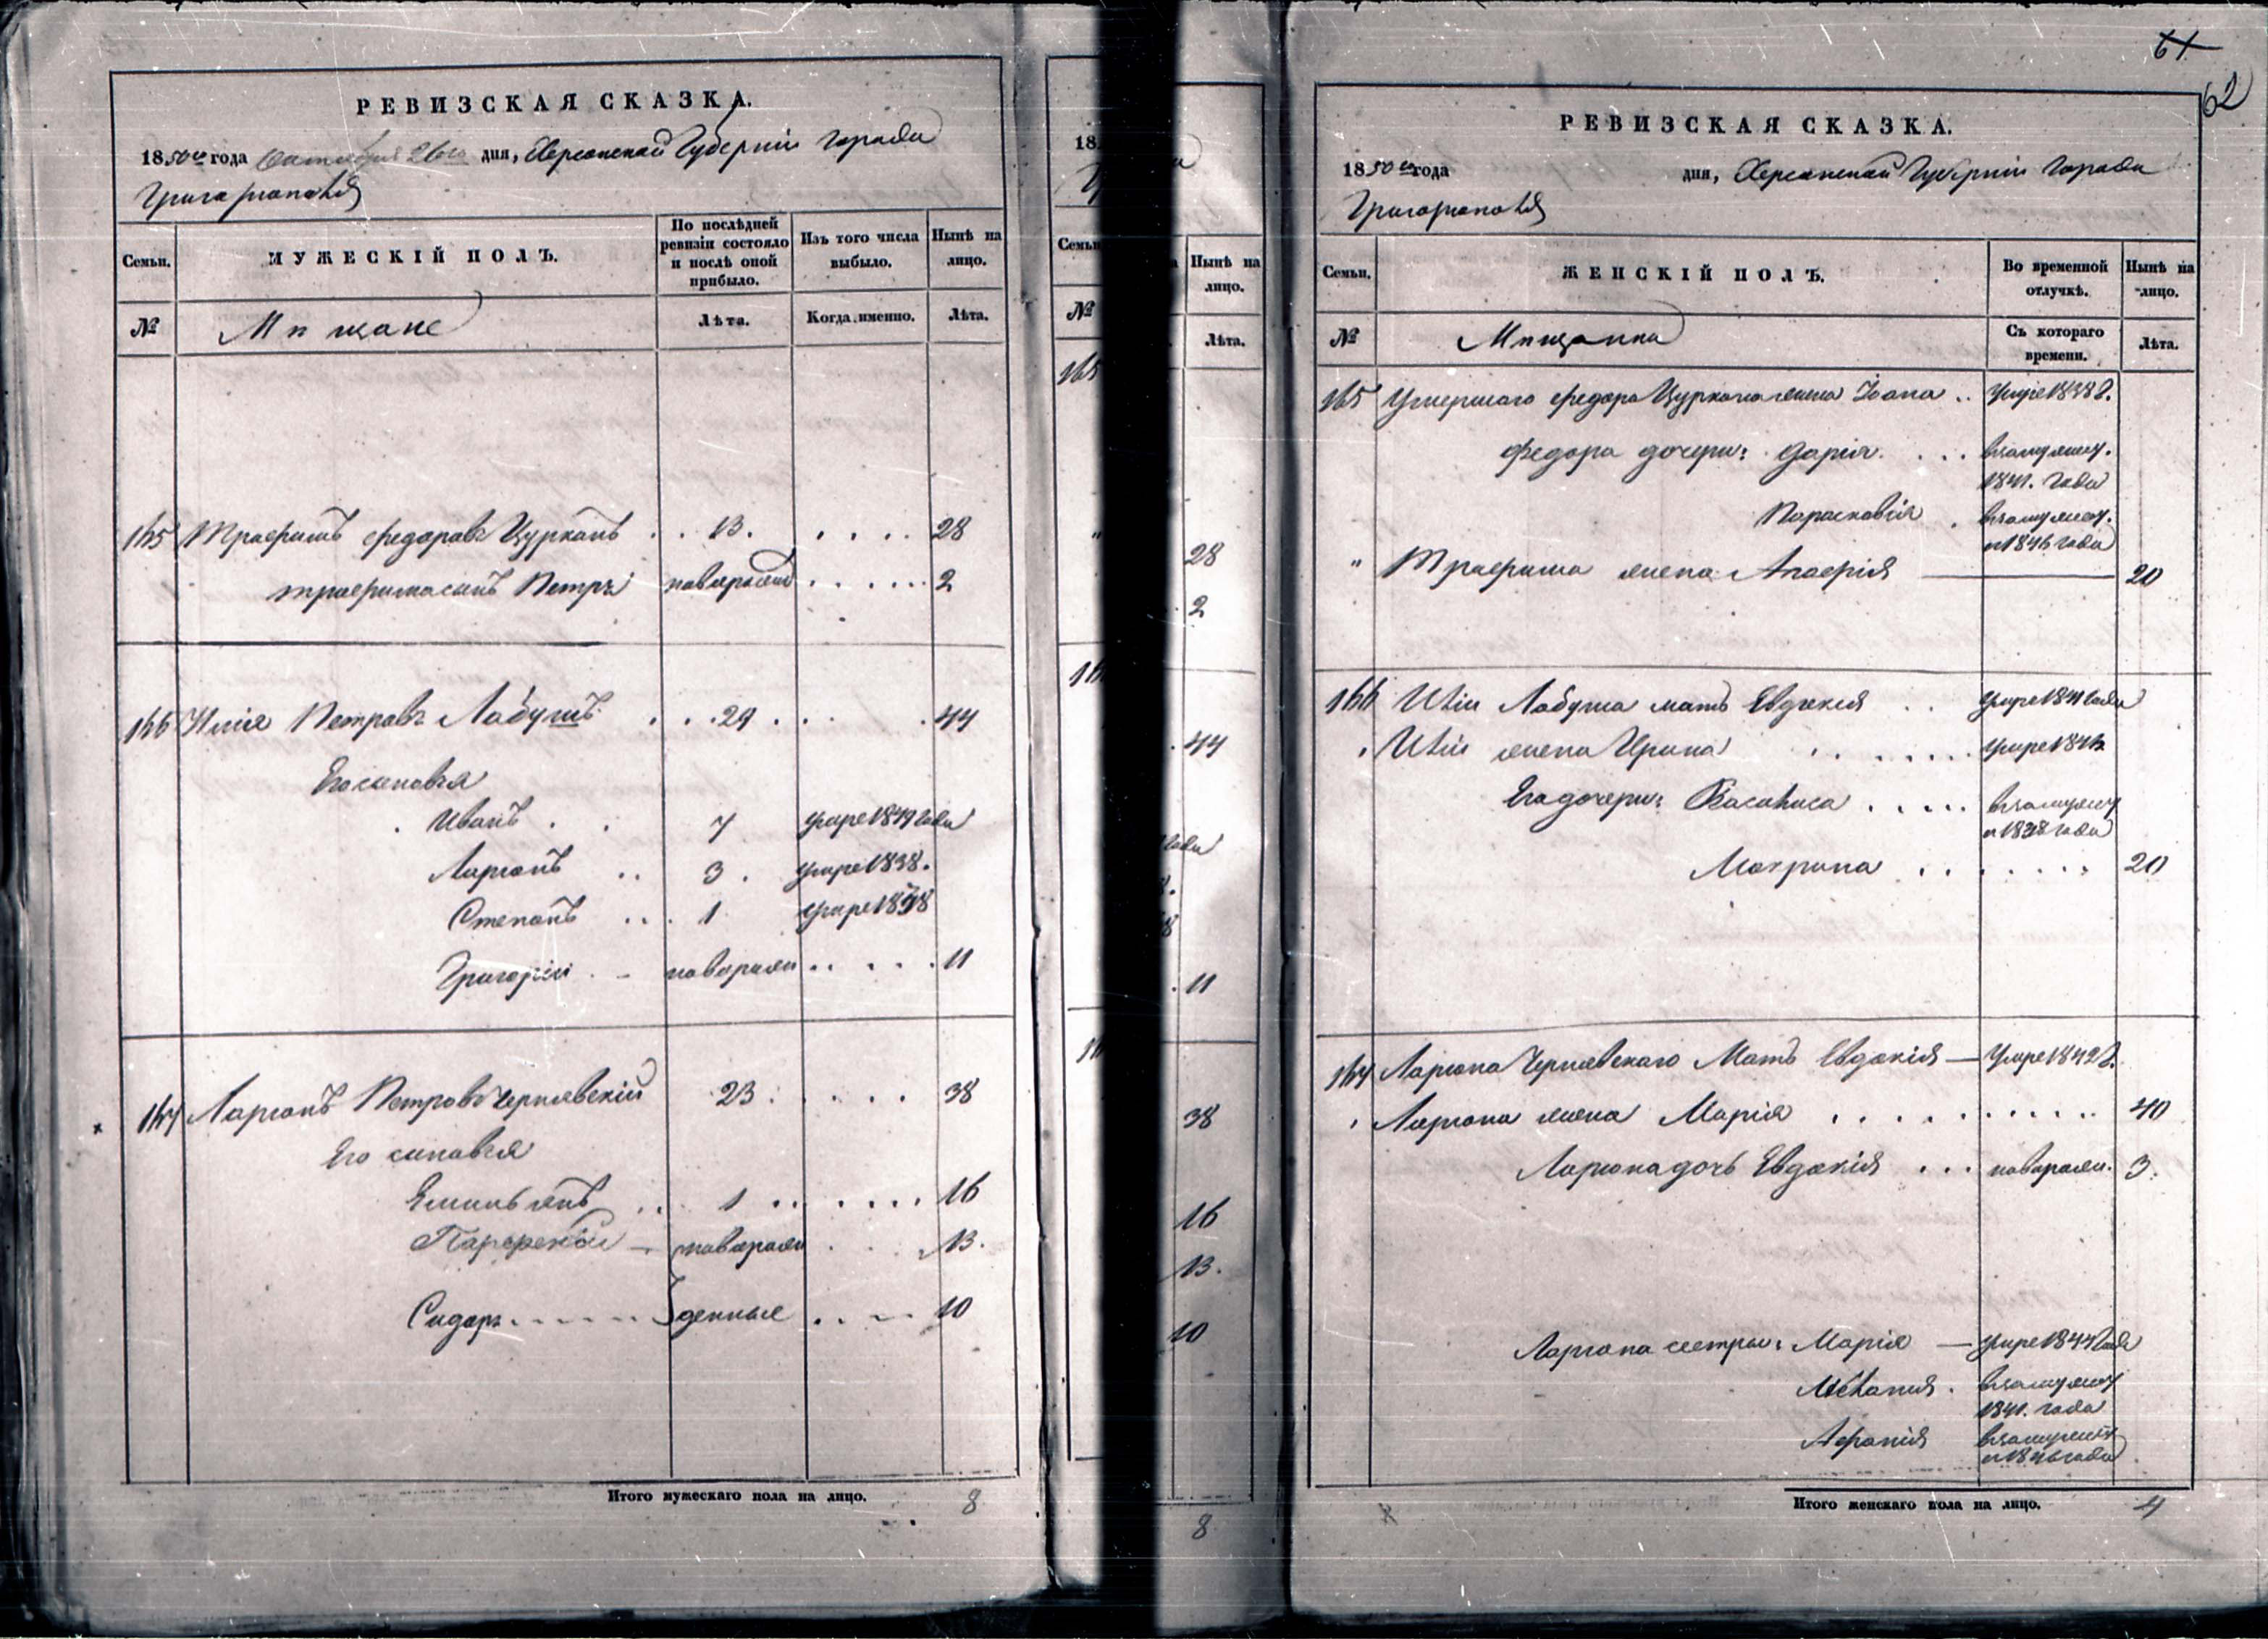 РЕВИЗСКАЯ СКАЗКА.
1850го года Октября 26го дня, Херсонской Губерніи города
Григоріополя
Семьи.
МУЖЕСКІЙ ПОЛЪ.
По послѣдней ревизіи состояло и послѣ оной прибыло.
Изъ того числа выбыло.
Нынѣ на лицо.
№
Мѣщане
Лѣта.
Когда именно.
Лѣта.
165 Трофимъ Федоровъ Цурканъ . . 13. . . . . 28
Трофима сынъ Петръ новорожд . . . . . . 2
166 Илія Петровъ Лабушъ . . . 29 . . . 44
Его сыновья
Иванъ . . 7 умре 1849 года
Ларіонъ . . 3 . умре 1838.
Степанъ . . . 1 умре 1848
Григорій . - новорожд . . . . . 11
167 Ларіонъ Петровъ Чернявскій 23 . . . . . 38
Его сыновья
Емильянъ . . . 1 . . . . . . 16
Парфеній — новорож . . . 13.
Сидоръ денные . . . 10
Итого мужескаго пола на лицо. 8
18
Семьи
№
165
"
Нынѣ на лицо.
Лѣта.
28
2
44
года
11
38
16
13.
10
8
61
62
РЕВИЗСКАЯ СКАЗКА.
1850го года дня, Херсонской Губерніи города
Григоріополя
Семьи.
ЖЕНСКІЙ ПОЛЪ.
Во временной отлучкѣ.
Нынѣ на лицо.
№
Мѣщанки
Съ котораго времени.
Лѣта.
165 Умершаго Федора Цуркана жена Іоана . . Умре 1838 г.
Федора дочери: Дарія . . . . взамужест.
1841. года
Парасковія . взамужест.
с 1846 года
" Трофима жена 20
166 Иліи Лабуша мать Евдокія . . умре 1841 года
" Иліи жена Ирина . . . . . . умре 1846
Его дочери: Василиса . . . . . взамужест
с 1838 года
Макрина . . . . . . . 20
167 Ларіона Чернявскаго Мать Евдокія — Умре 1842 г.
" Ларіона жена Марія . . . . . . . . . . 40
Ларіона дочь Евдокія . . . новорожд. 3.
Ларіона сестры: Марія — умре 1844 года
Меланія . взамужест
1841. года
Афанія взамужест
с 1846 года
Итого женскаго пола на лицо. 4